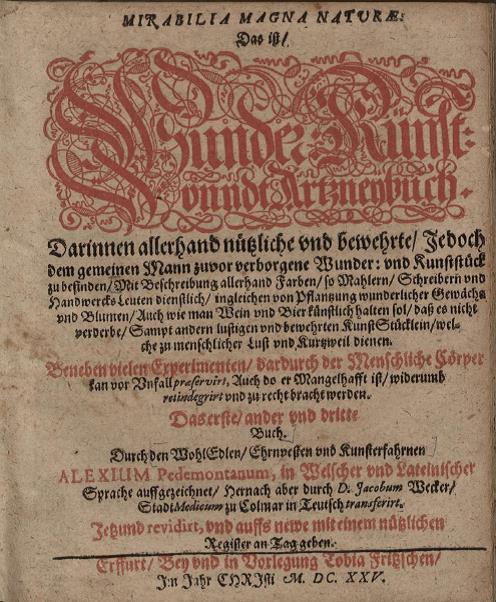 MIRABILIA MAGNA NATURÆ:
Das ist/
Wunder-Kunst-
vnndt Artzneybuch.
Darinnen allerhand nützliche vnd bewehrte/ Jedoch
dem gemeinen Mann zuvor verborgene Wunder: vnd Kunststück
zu befinden/ Mit Beschreibung allerhand Farben/ so Mahlern/ Schreibern vnd
Handwercks Leuten dienstlich/ ingleichen von Pflantzung wunderlicher Gewächs
vnd Blumen/ Auch wie man Wein vnd Bier künstlich halten sol/ daß es nicht
verderbe/ Sampt andern lustigen vnd bewehrten KunstStücklein/ wel-
che zu menschlicher Lust vnd Kurtzweil dienen.
Beneben vielen Experimenten/ dardurch der Menschliche Cörper
kan vor Vnfall præservirt, Auch do er Mangelhafft ist/ widerumb
redindegrirt vnd zu recht bracht werden.
Das erste/ ander vnd dritte
Buch.
Durch den WohlEdlen/ Ehrnvesten vnd Kunsterfahrnen
ALEXIUM Pedemontanum, in Welscher vnd Lateinischer
Sprache auffgezeichnet/ Hernach aber durch D. Jacobum Wecker/
Stadt Medicum zu Colmar in Teutsch transferirt.
Jetzund revidirt, vnd auffs newe mit einem nützlichen
Register an Tag geben.
Erffurt/ Bey vnd in Vorlegung Tobia Fritzschen/
Im Jahr CHRIsti M. DC. XXV.